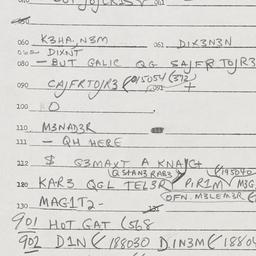 060 K3HA.N3M 061 DIX3N3N
062 DIXNT
080 - BUT GALIC QG SAJFR TOJR3
090 CAJFRTOJR3 (015054 (372)
091 +
100 O
110 M3NAD3R
111 - QH HERE
112 $ G3MAXT A KNAJG+
Q STAN3RAR3 (195040
120 KAR3 QGL TEL3R PIR1M M3G
OFN. M3LEM3R
130 MAG1T2-
131
901 HOT GAT (568
902 D1N (188030 D.IN3M (18804